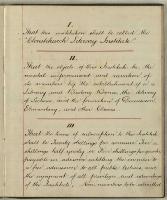 I.
That this institution shall be called the
"Christchurch Literary Institute"
II.
That the objects of this Institute be the
mental improvement and recreation of
its members by the establishment of a
Library and Reading Room, the delivery
of Lectures and the formation of Discussion
Elementary and other Classes.
III.
That the terms of subscription to the Institute
shall be Twenty shillings per annum,
shillings half yearly or Five shillings per quarter
payable in advance entitling the member to
admission to all public lectures and
the enjoyment of all privileges and advantages
of the Institute. New members to be admitted